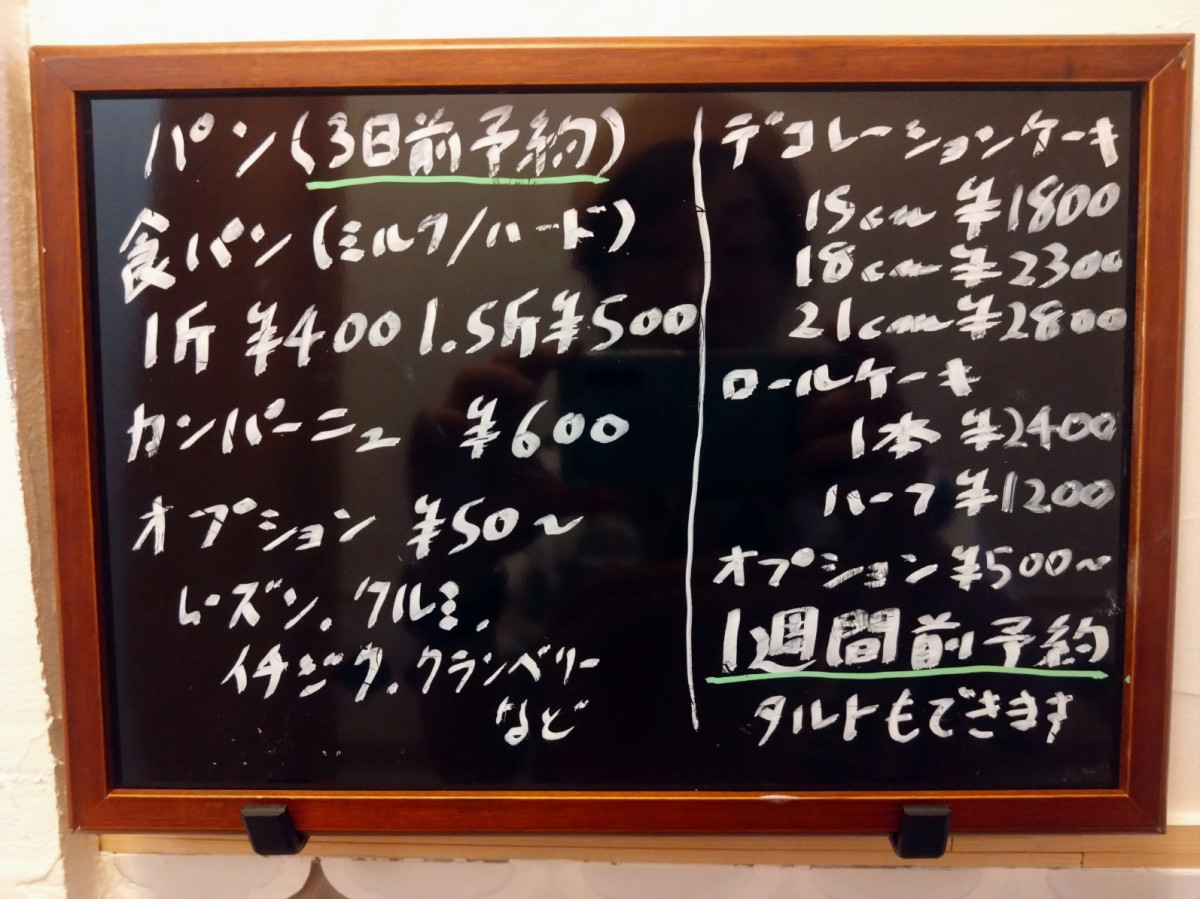 パン(3日前予約)
食パン(ミルク/ハード)
1斤 ¥400 1.5斤¥500
カンパーニュ ¥600
オプション ¥50~
レーズン、クルミ、
イチジク、クランベリー
など
デコレーションケーキ
15cm ¥1800
18cm ¥2300
21cm ¥2800
ロールケーキ
1本 ¥2400
ハーフ ¥1200
オプション ¥500~
1週間前予約
タルトもできます